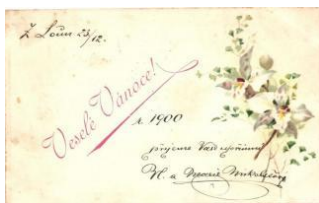 Z Loun 23/12.
Veselé Vánoce!
r. 1900
přejeme Vaši upřímní
a Marie